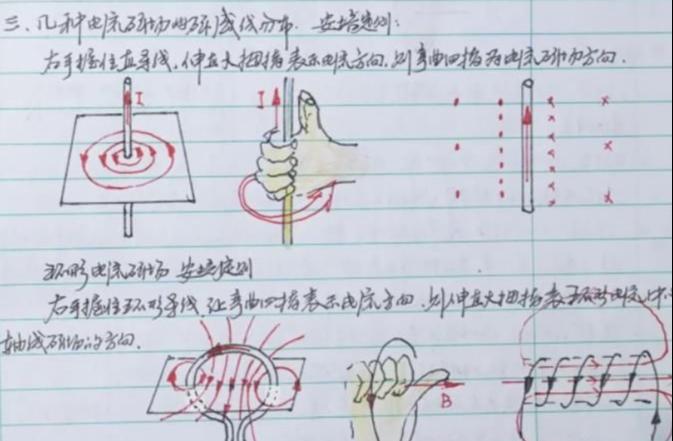 三、几种电流磁场的磁感线分布. 安培定则:
右手握住直导线,伸直大拇指表示电流方向,则弯曲四指为电流磁场方向.
I
I
环形电流磁场 安培定则
右手握住环形导线,让弯曲四指表示电流方向,则伸直大拇指表示环形电流中心
轴线磁场的方向.
B